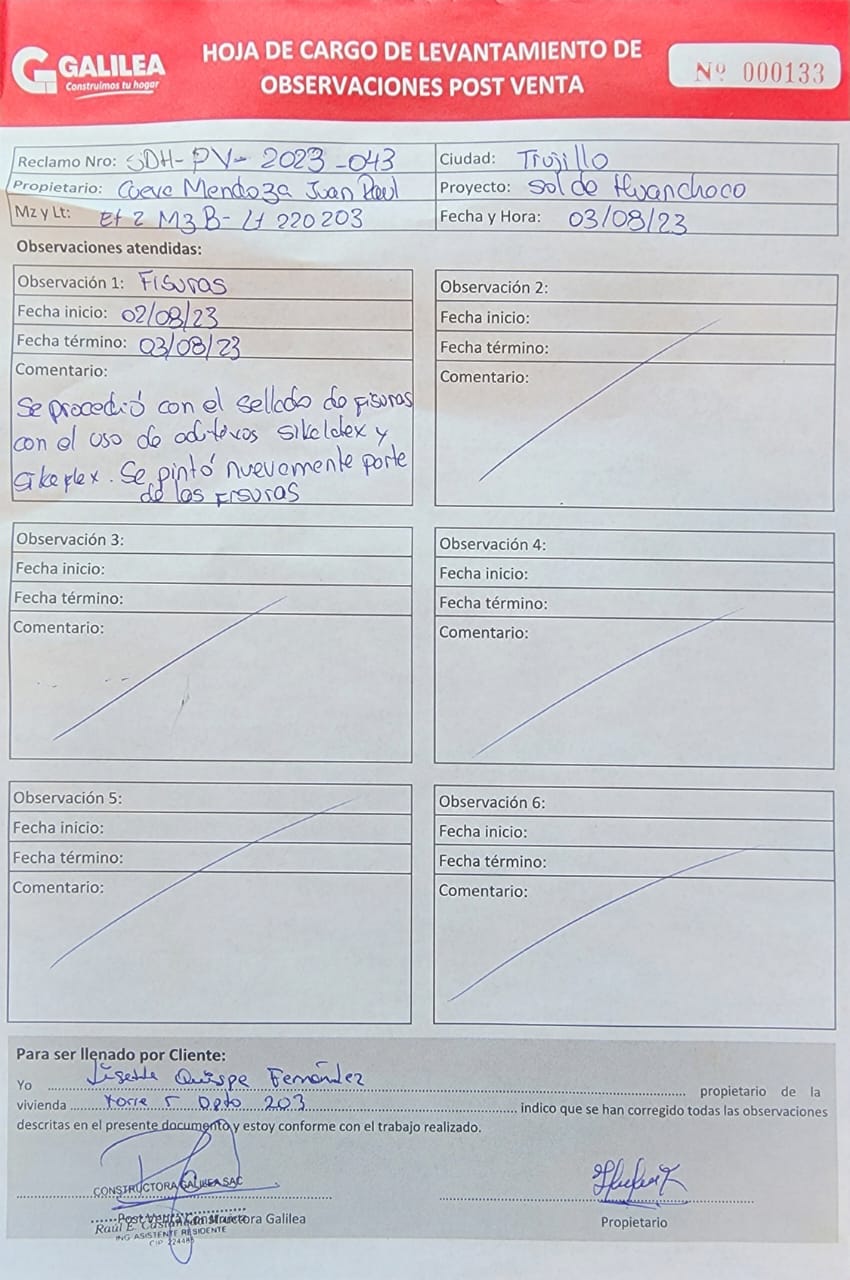 GALILEA
Construimos tu hogar
HOJA DE CARGO DE LEVANTAMIENTO DE
OBSERVACIONES POST VENTA
Nº 000133
Reclamo Nro: SDH-PV-2023-043
Ciudad: Trujillo
Propietario: Cueva Mendoza Juan Raul
Proyecto: Sol de Huanchaco
Mz y Lt: Et 2 M3 B- Lt 220203
Fecha y Hora: 03/08/23
Observaciones atendidas:
Observación 1: Fisuras
Fecha inicio: 02/08/23
Fecha término: 03/08/23
Comentario:
Se procedió con el sellado de fisuras
con el uso de aditivos sikalatex y
sikaflex. Se pintó nuevamente parte
de las fisuras
Observación 2:
Fecha inicio:
Fecha término:
Comentario:
Observación 3:
Fecha inicio:
Fecha término:
Comentario:
Observación 4:
Fecha inicio:
Fecha término:
Comentario:
Observación 5:
Fecha inicio:
Fecha término:
Comentario:
Observación 6:
Fecha inicio:
Fecha término:
Comentario:
Para ser llenado por Cliente:
Yo Lisette Quispe Fernández propietario de la
vivienda torre 5 Dpto 203 indico que se han corregido todas las observaciones
descritas en el presente documento y estoy conforme con el trabajo realizado.
CONSTRUCTORA GALILEA SAC
Post Venta Constructora Galilea
Raúl E.
ING ASISTENTE RESIDENTE
CIP
Propietario